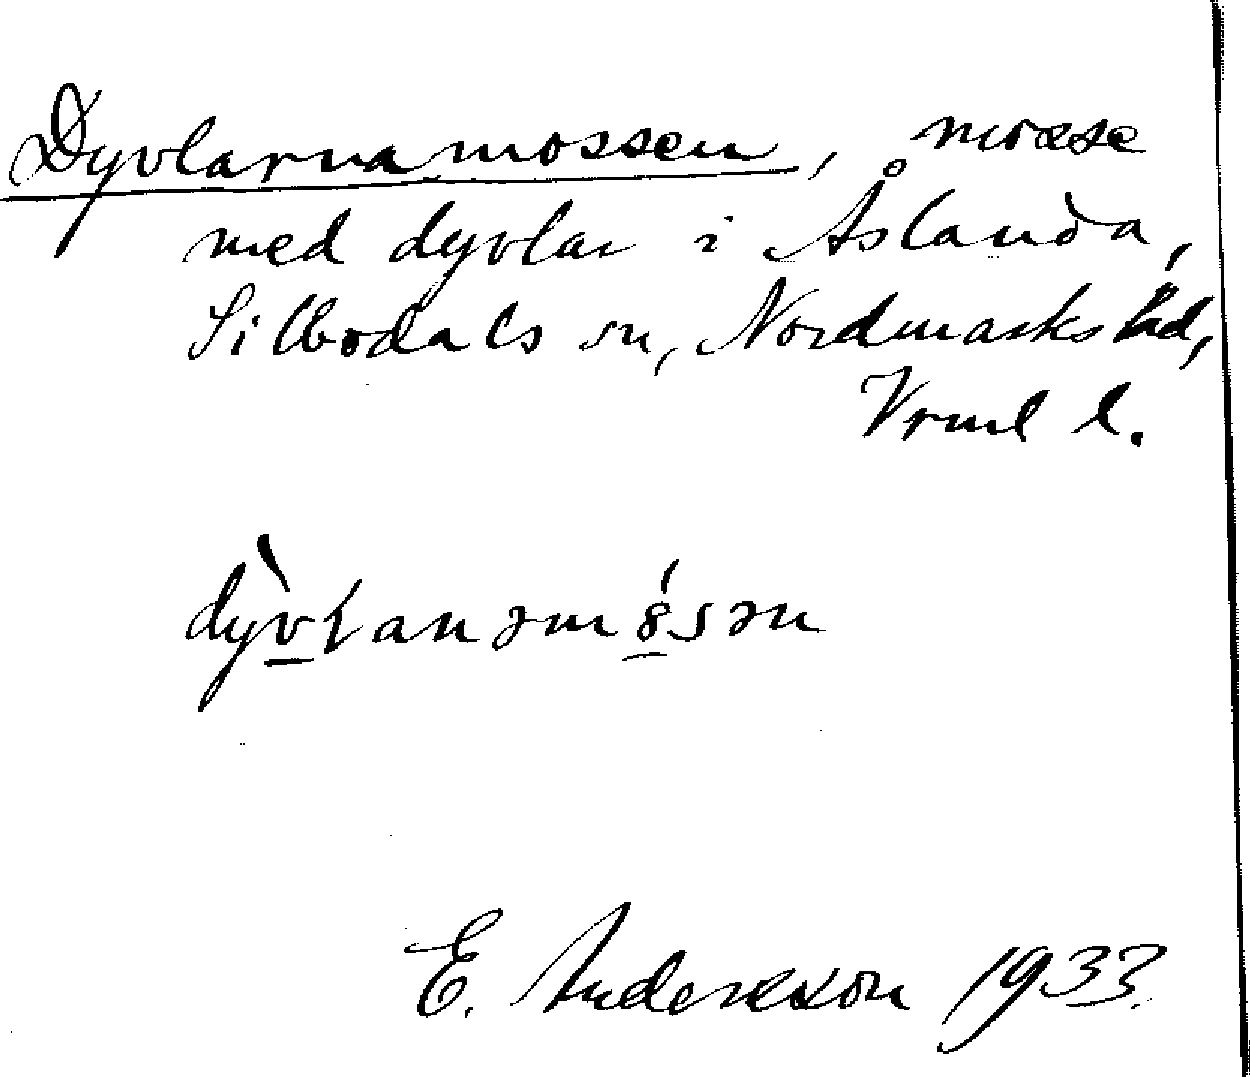 Dyvlarnamossen, mosse
med dyvlar i Åslanda,
Silbodals sn, Nordmarks hd,
Vrml l.
dỳvłanəmósən
E. Andersson 1933.